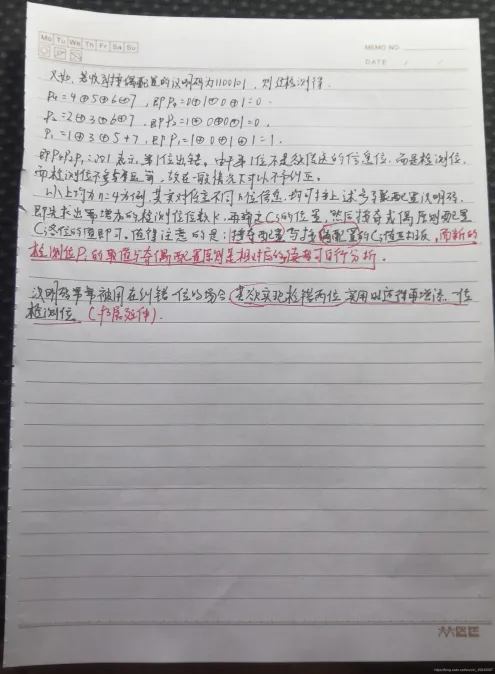 Mo Tu We Th Fr Sa Su
MEMO NO.
DATE / /
又如,若收到按偶配置的汉明码为1100101,则经检测得
P4=4⊕5⊕6⊕7,即P4=0⊕1⊕0⊕1=0.
P2=2⊕3⊕6⊕7,即P2=1⊕0⊕0⊕1=0.
P1=1⊕3⊕5+7,即P1=1⊕0⊕1⊕1=1.
即P4P2P1=001表示,第1位出错,由于第1位不是欲传送的信息位,而是检测位,
而检测位不参与应用,故在一般情况下可以不予纠正。
以上均为n=4为例,其实对任意不同n位信息,均可按上述步骤配置汉明码,
即先求出需增添的检测位位数k,再确定Ci的位置,然后按奇或偶原则配置
Ci各位的值即可,值得注意的是:按奇配置与按偶配置的Ci值正相反,而新的
检测位Pi的取值与奇偶配置原则是相对应的,读者可自行分析.
汉明码常常被用在纠错一位的场合,若欲实现检错两位,实用时还得再增添一位
检测位(扩展延伸).